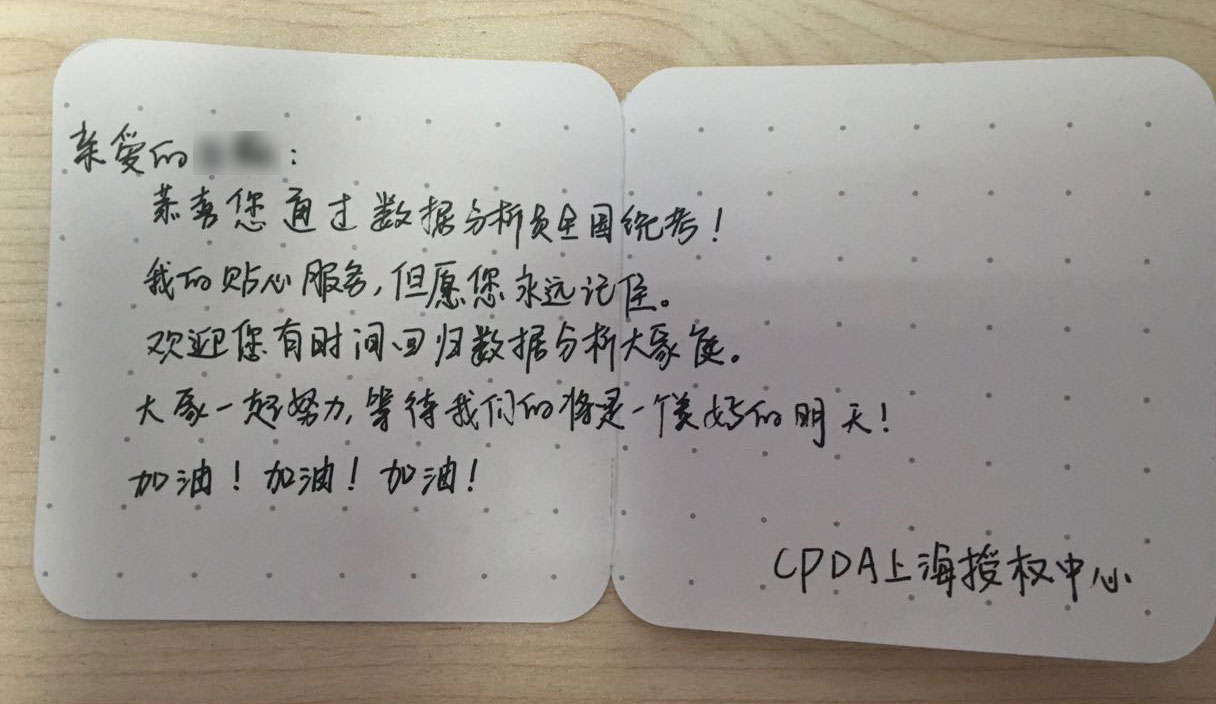 亲爱的 :
恭喜您通过数据分析员全国统考!
我的贴心服务,但愿您永远记住。
欢迎您有时间回归数据分析大家庭。
大家一起努力,等待我们的将是一个美好的明天!
加油!加油!加油!
CPDA上海授权中心